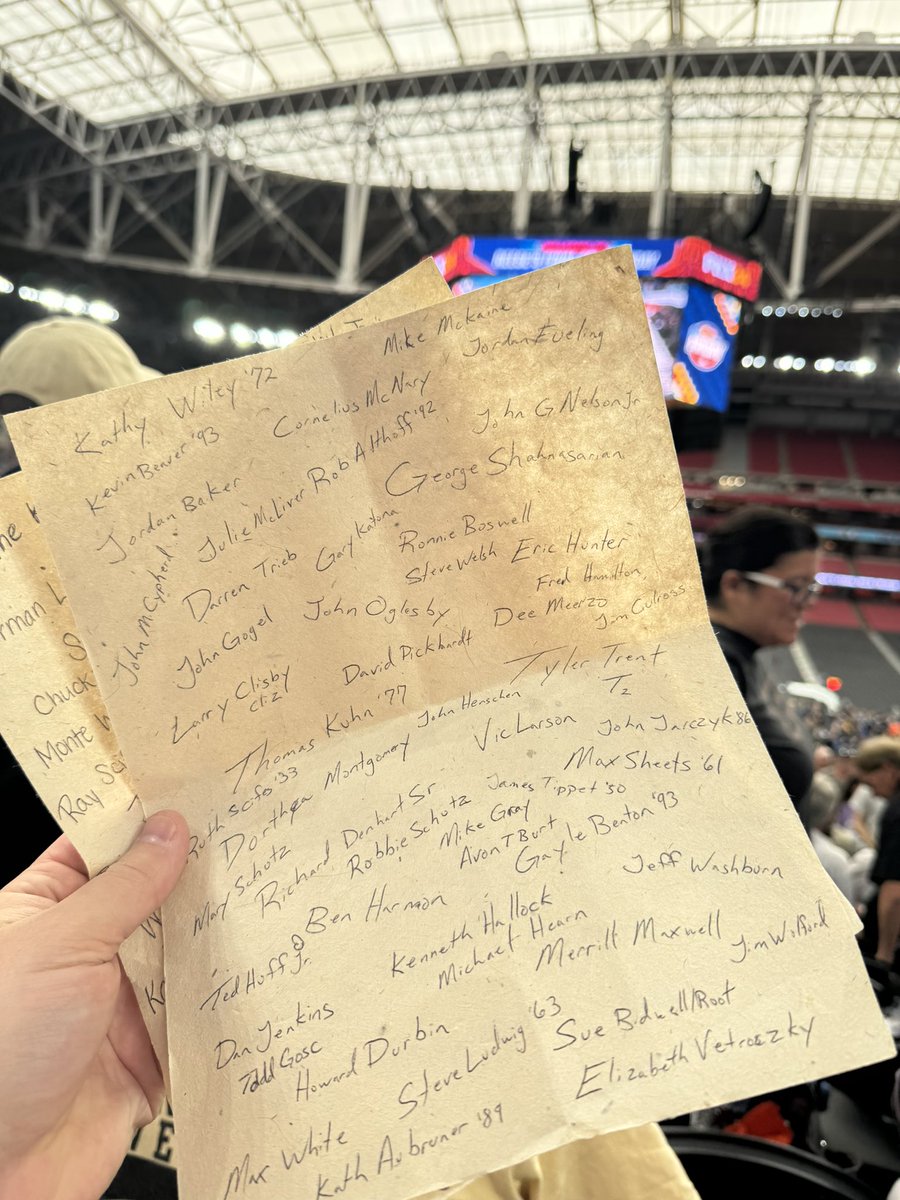 Mike McKaine
Jordan Eveling
Kathy Wiley '72
Cornelius McNary
Kevin Beaver '93
Rob Althoff '92
John G Nelson Jr
Jordan Baker
Julie McLiver
George Shahnasarian
John McCypherd
Darren Trieb
Gary Katona
Ronnie Boswell
Steve Welsh
Eric Hunter
Fred Hamilton
John Gogel
John Oglesby
Dee Meerzo
Jim Culross
Larry Clisby
crz
David Pickhardt
Tyler Trent
T2
Thomas Kuhn '77
John Henschen
Vic Larson
John Jarczyk '86
Ruth Scifo '33
Dorthea Montgomery
Max Sheets '61
Mary Schotz
Richard Denhart Sr
Robbie Schotz
James Tippet '50
Mike Gray
Avon T Burt
Gayle Benton '93
Ben Harmon
Jeff Washburn
Ted Huff Jr.
Kenneth Hallock
Michael Hearn
Merrill Maxwell
Jim Wolford
Dan Jenkins
Todd Gosc
Howard Durbin
Steve Ludwig '63
Sue Bidwell/Root
Elizabeth Vetroszky
Max White
Kath Aubruner '89
Chuck
Monte
Ray